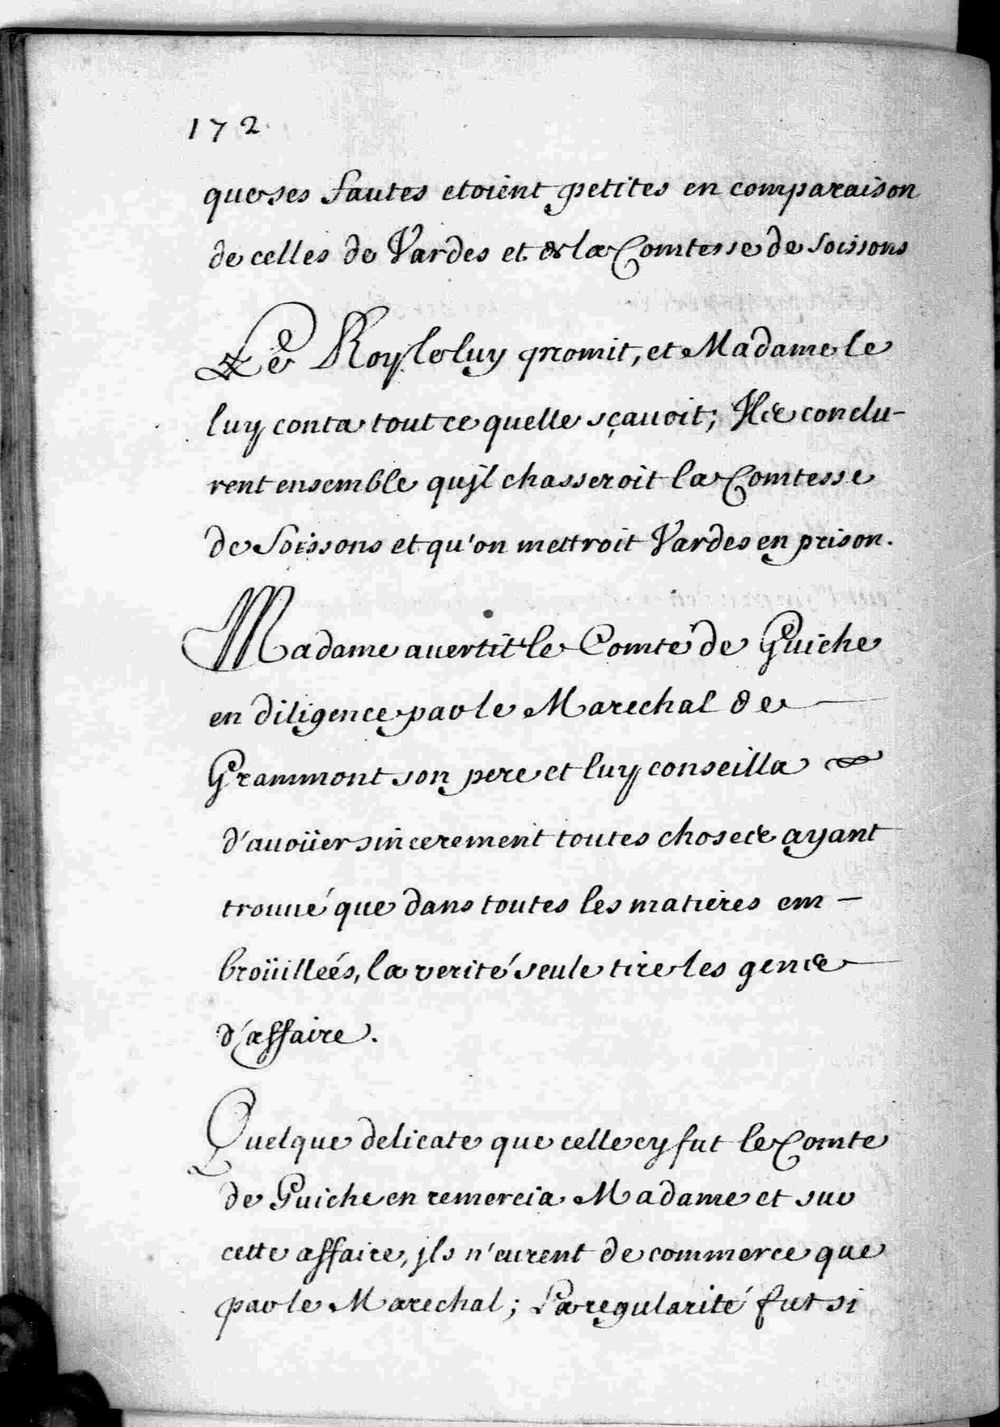 172
que ses fautes etoient petites en comparaison
de celles de Vardes et de la Comtesse de Soissons
Le Roy le luy promit, et Madame le
luy conta tout ce quelle sçavoit; Ils conclu-
rent ensemble qujl chasseroit la Comtesse
de Soissons et qu'on mettroit Vardes en prison.
Madame avertit le Comte de Guiche
en diligence par le Marechal de
Grammont son pere et luy conseilla
d'avoüer sincerement toutes choses ayant
trouvé que dans toutes les matieres em-
broüilleés, la verité seule tire les gens
d'affaire.
Quelque delicate que celle cy fut le Comte
de Guiche en remercia Madame et sur
cette affaire, jls n'eurent de commerce que
par le Marechal; La regularité fut si